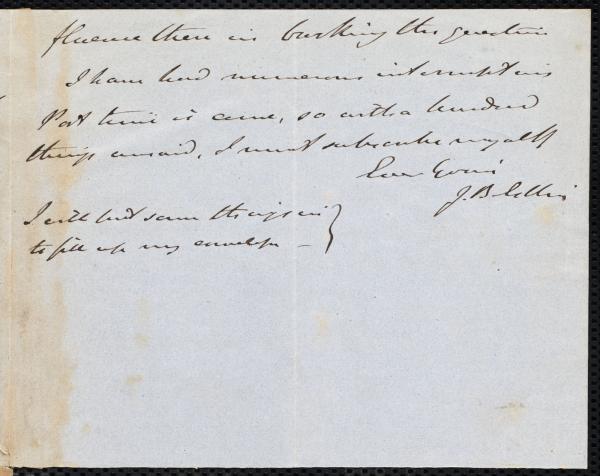 fluence there in burking the question
I have had numerous interruptions
Post time is come, so with a hundred
things unsaid, I must subscribe myself
Ever Yours
J. B. Estlin
I will put some things in
to fill up my envelope —